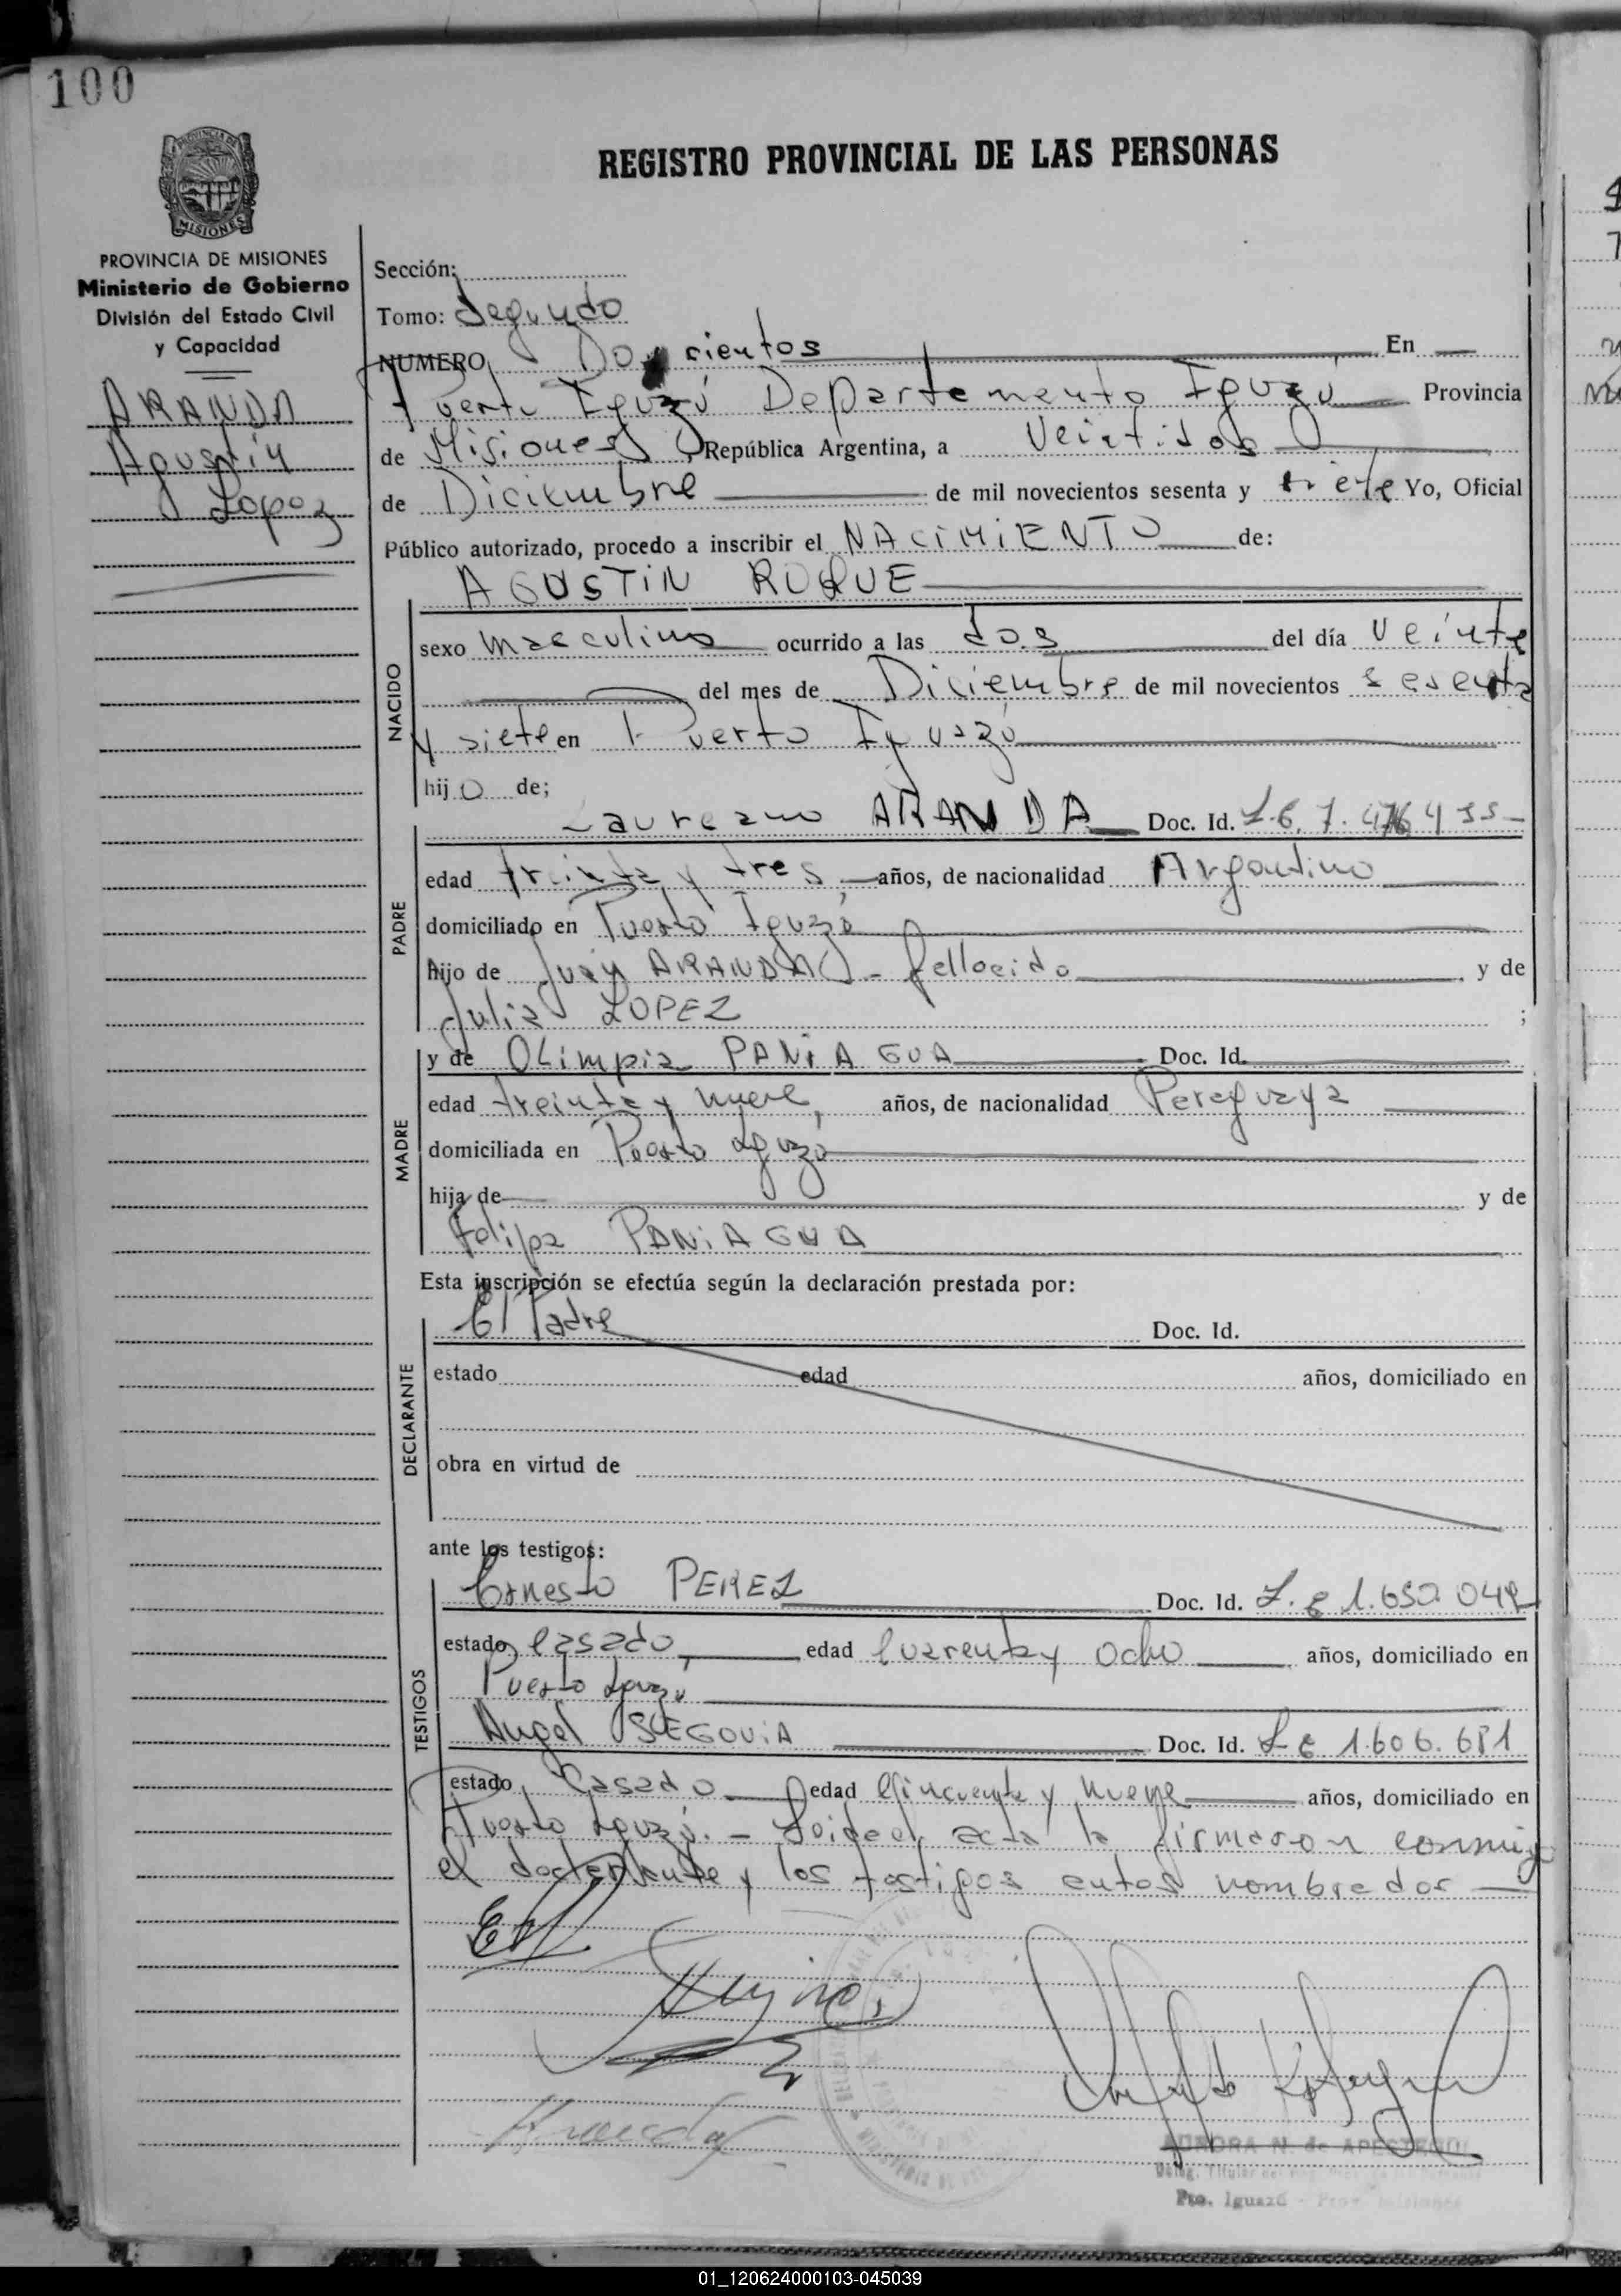 100
REGISTRO PROVINCIAL DE LAS PERSONAS
MISIONES
PROVINCIA DE MISIONES
Ministerio de Gobierno
División del Estado Civil
y Capacidad
ARANDA
Agustín
Lopez
Sección:
Tomo: Segundo
NUMERO Doscientos En
Puerto Iguazú Departamento Iguazú Provincia
de Misiones República Argentina, a Veintidos
de Diciembre de mil novecientos sesenta y siete Yo, Oficial
Público autorizado, procedo a inscribir el NACIMIENTO de:
AGUSTIN ROQUE
NACIDO
sexo masculino ocurrido a las dos del día veinte
del mes de Diciembre de mil novecientos sesenta
y siete en Puerto Iguazú
hijo de;
PADRE
Laureano ARANDA Doc. Id. L.E. 7.476
edad treinta y tres años, de nacionalidad Argentino
domiciliado en Puerto Iguazú
hijo de Juan ARANDA - fallecido y de
Julia LOPEZ ;
MADRE
y de OLimpia PANIAGUA Doc. Id.
edad treinta y nueve, años, de nacionalidad Paraguaya
domiciliada en Puerto Iguazú
hija de y de
Felipa PANIAGUA
Esta inscripción se efectúa según la declaración prestada por:
DECLARANTE
El Padre Doc. Id.
estado edad años, domiciliado en
obra en virtud de
ante los testigos:
TESTIGOS
Ernesto PEREZ Doc. Id. L.E 1.650.042
estado casado, edad Cuarenta y ocho años, domiciliado en
Puerto Iguazú
Angel SEGOVIA Doc. Id. LE 1.606.681
estado Casado edad Cincuenta y nueve años, domiciliado en
Puerto Iguazú. - Leida el acta la firmaron conmigo
el declarante y los testigos antes nombrados
Aranda
AURORA N. de APESTEGUI
Deleg. Titular del
Pto. Iguazú - Prov. Misiones
01_120624000103-045039